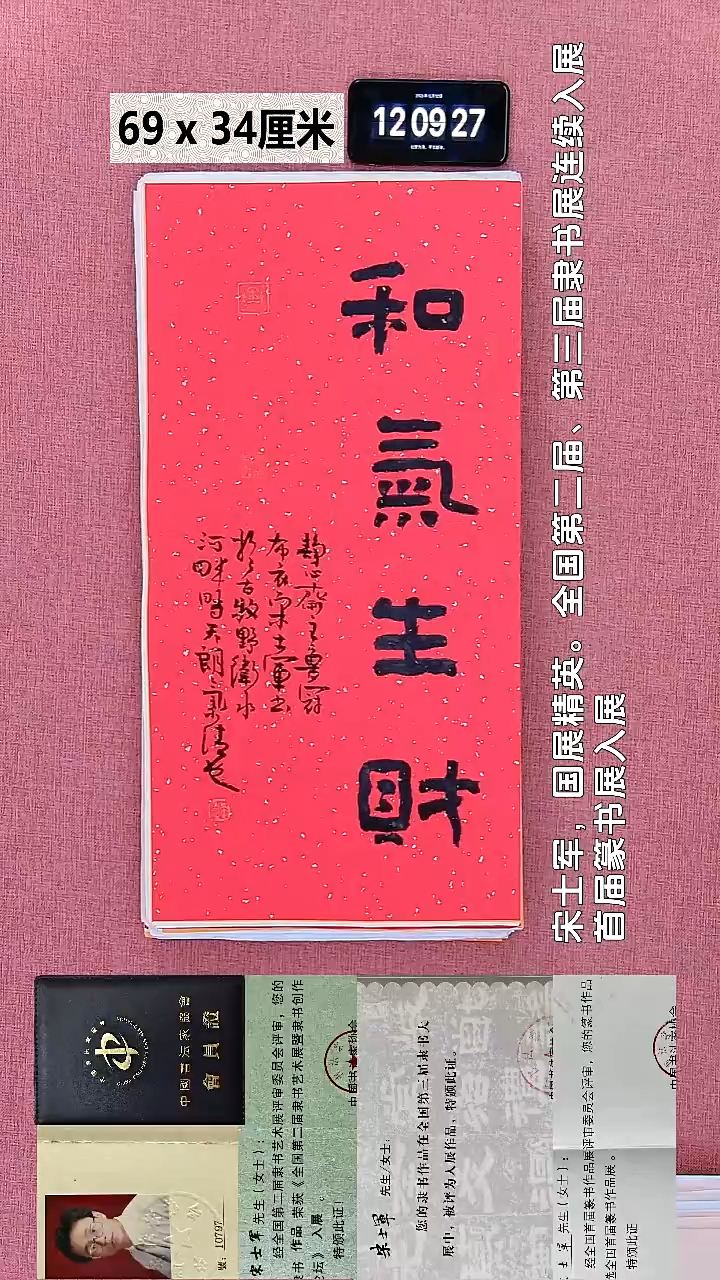 69 x 34厘米
12 09 27
和氣生財
静心斋主鲁冠
布衣宋士军书
於古牧野衛水
河畔時天朗氣清也
宋士军，国展精英。全国第二届、第三届隶书展连续入展
首届篆书展入展
中國書法家協會
會員證
號：10797
宋士军 先生（女士）：
经全国第二届隶书艺术展评审委员会评审，您的
隶书 作品 荣获《全国第二届隶书艺术展暨隶书创作
论坛》 入展 。
特颁此证！
宋士軍 先生/女士：
您的隶书作品在全国第三届隶书大
展中，被评为入展作品，特颁此证。
士军 先生（女士）：
经全国首届篆书作品展评审委员会评审，您的篆书作品
选全国首届篆书作品展。
特颁此证